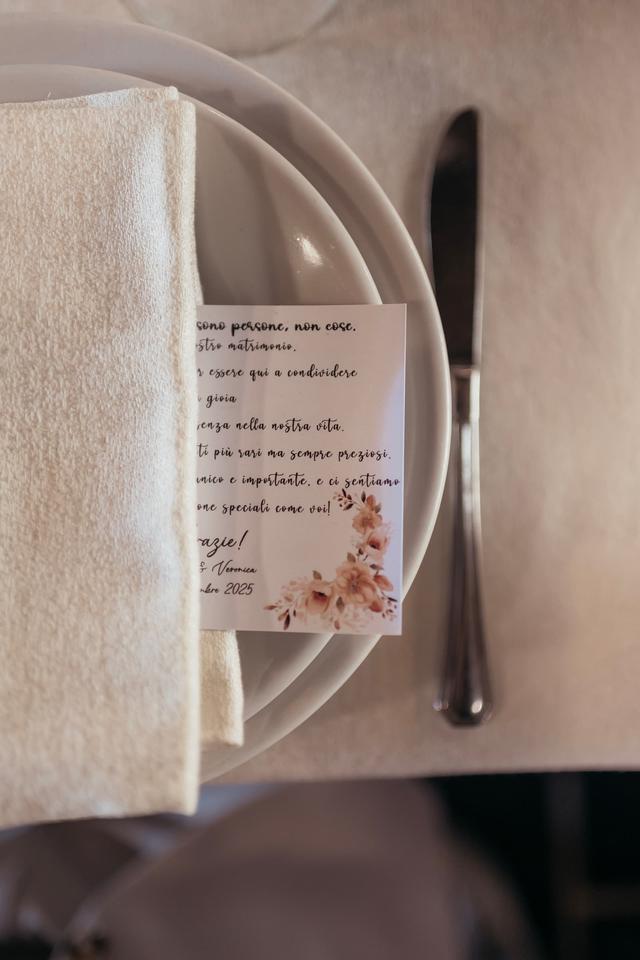 sono persone, non cose.
stro matrimonio.
r essere qui a condividere
gioia
enza nella nostra vita.
ti più rari ma sempre preziosi.
unico e importante, e ci sentiamo
one speciali come voi!
razie!
& Veronica
mbre 2025